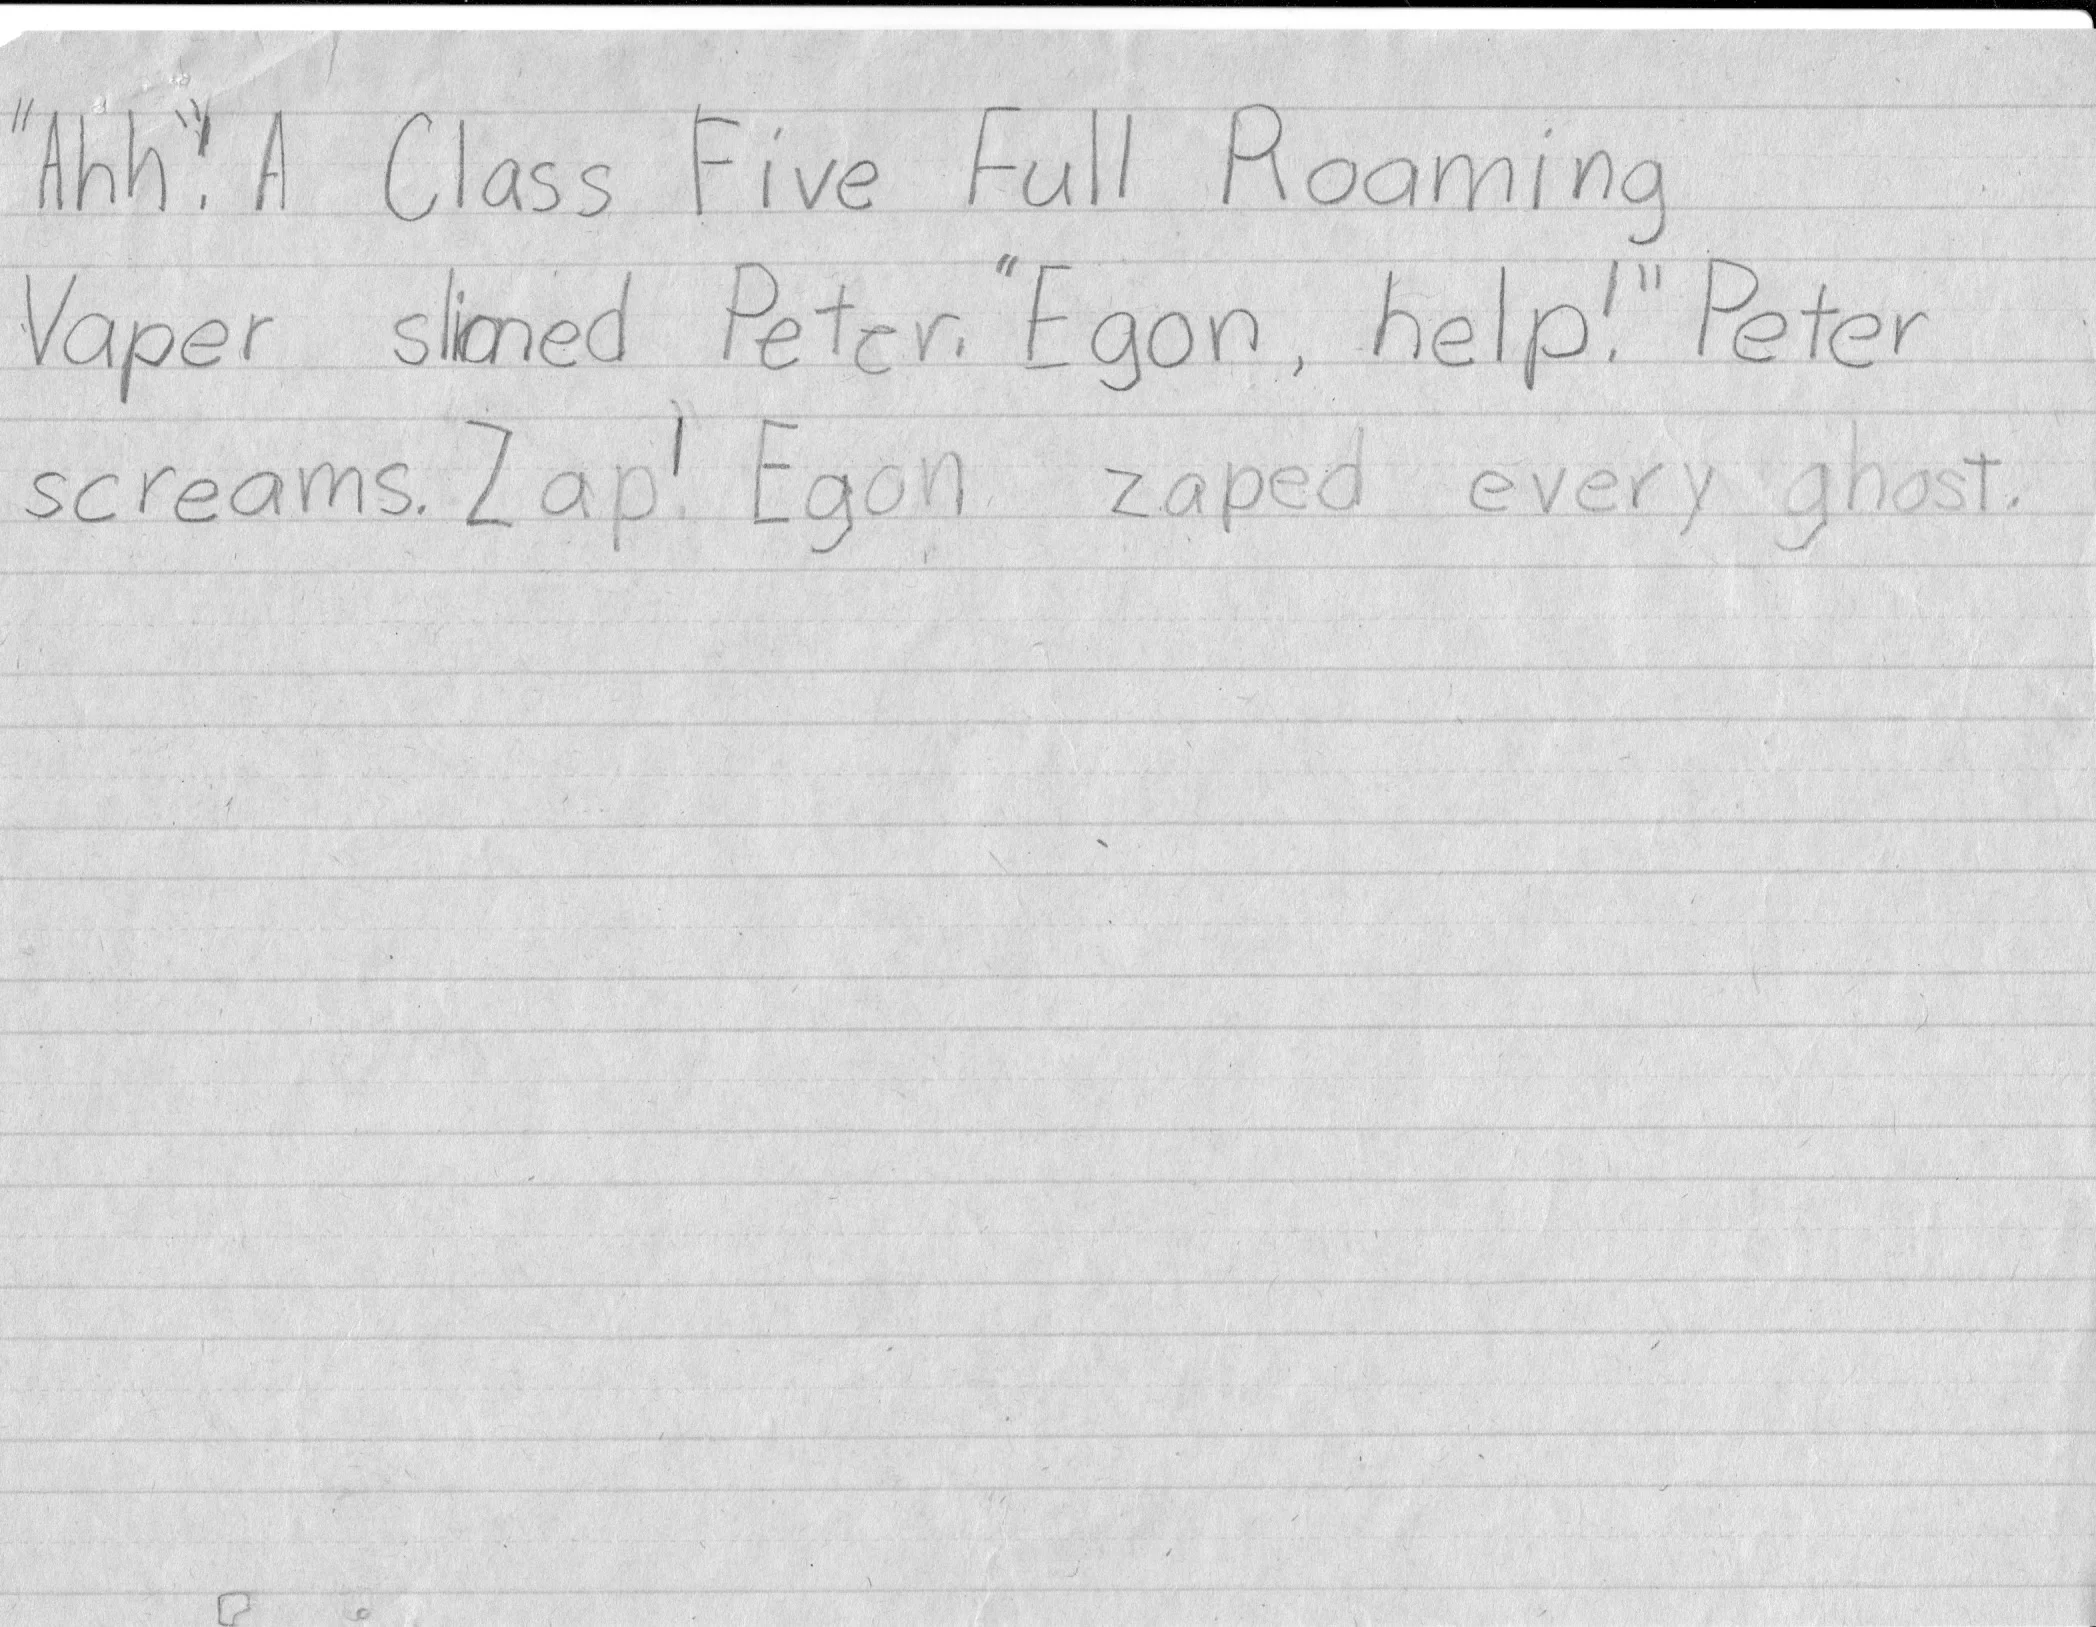 "Ahh"! A Class Five Full Roaming
Vaper slimed Peter. "Egon, help!" Peter
screams. Zap! Egon zaped every ghost.